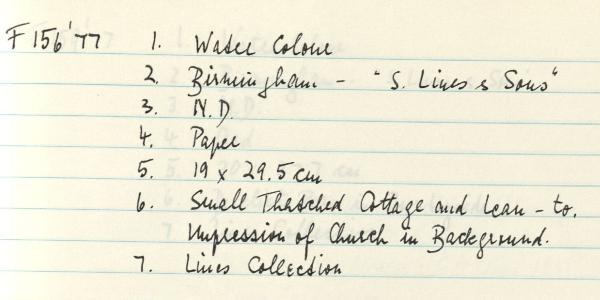 F156'77 1. Water Colour
2. Birmingham - "S. Lines & Sons"
3. N.D.
4. Paper
5. 19 x 29.5 cm
6. Small Thatched Cottage and lean-to.
Impression of Church in Background.
7. Lines Collection